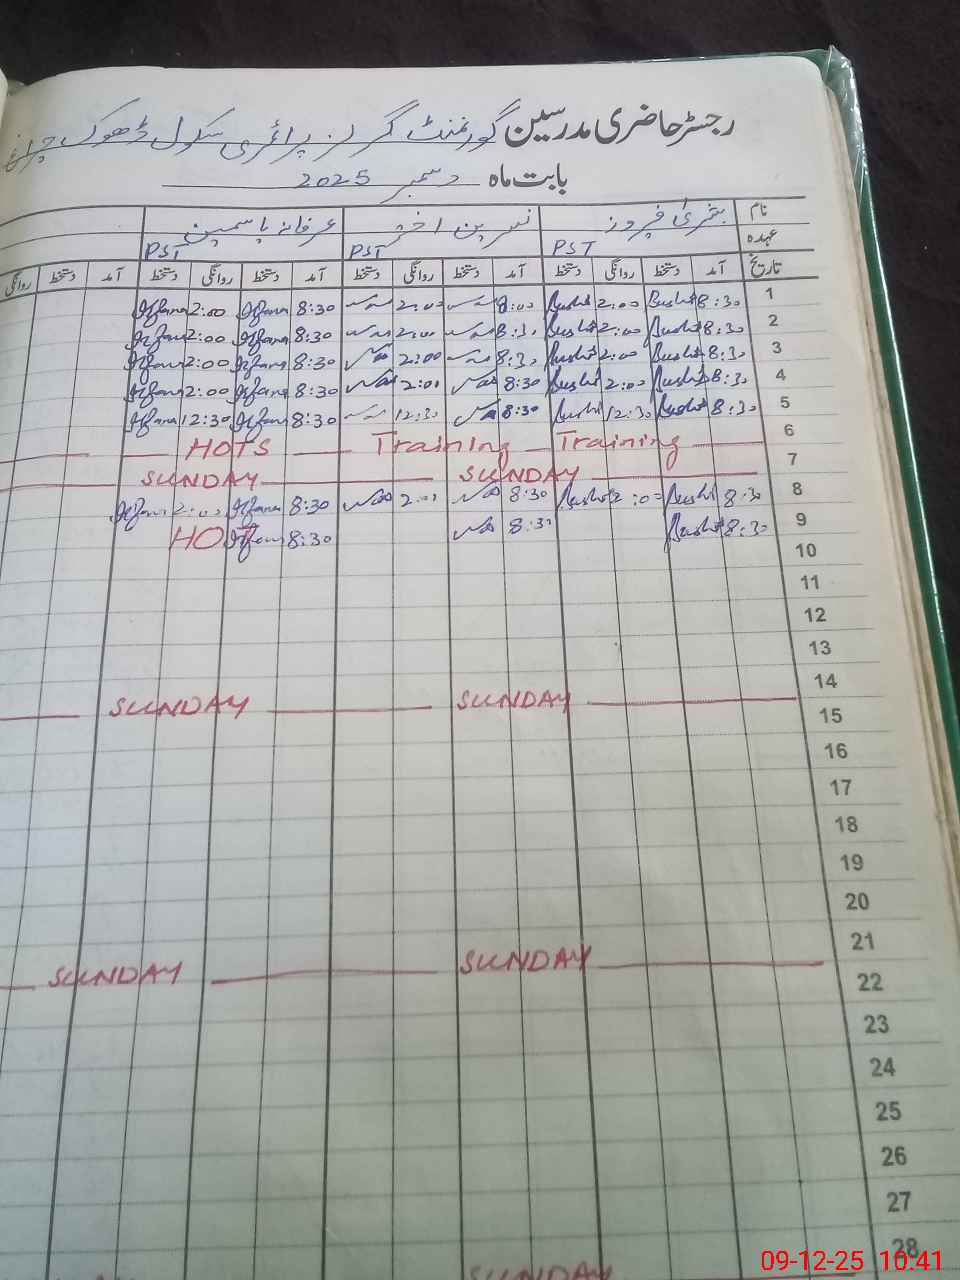 رجسٹر حاضری مدرسین گورنمنٹ گرلز پرائمری سکول ڈھوک چراغ
بابت ماہ دسمبر 2025
نام بشریٰ فیروز نسرین اختر عرفانہ یاسمین
عہدہ PST PST PST
تاریخ آمد دستخط روانگی دستخط آمد دستخط روانگی دستخط آمد دستخط روانگی دستخط آمد دستخط روانگی
1 8:30 Bushra 2:00 Bushra 8:00 2:00 8:30 Irfana 2:00 Irfana
2 8:30 Bushra 2:00 Bushra 8:30 2:00 8:30 Irfana 2:00 Irfana
3 8:30 Bushra 2:00 Bushra 8:30 2:00 8:30 Irfana 2:00 Irfana
4 8:30 Bushra 2:00 Bushra 8:30 2:00 8:30 Irfana 2:00 Irfana
5 8:30 Bushra 12:30 Bushra 8:30 12:30 8:30 Irfana 12:30 Irfana
6 HOTS Training Training
7 SUNDAY SUNDAY
8 8:30 Bushra 2:00 Bushra 8:30 2:00 8:30 Irfana 2:00 Irfana
9 8:30 Bushra 8:30 8:30 Irfana HOT
10
11
12
13
14 SUNDAY SUNDAY
15
16
17
18
19
20
21 SUNDAY SUNDAY
22
23
24
25
26
27
28 SUNDAY
09-12-25 10:41